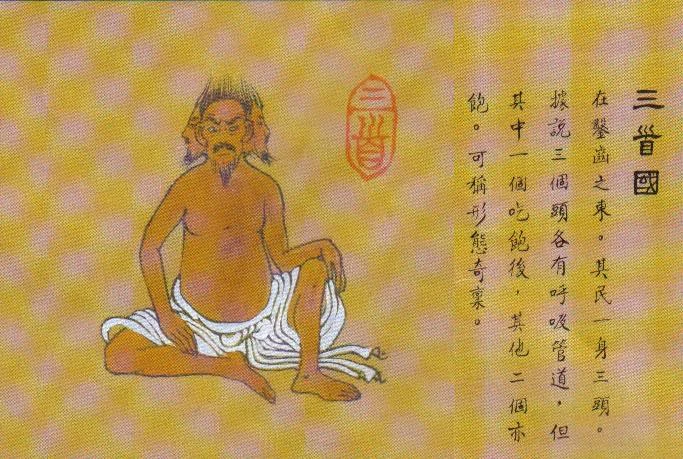 三首國
在鑿齒之東。其民一身三頭。
據說三個頭各有呼吸管道，但
其中一個吃飽後，其他二個亦
飽。可稱形態奇裏。
三首